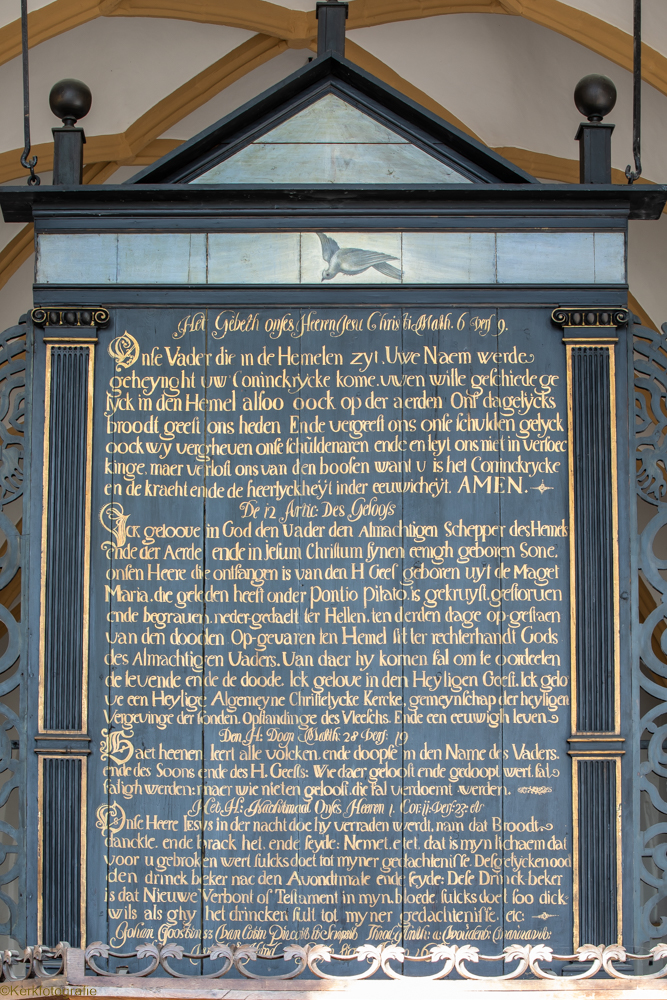 Het Gebedt onses Heeren Jesu Christi Matth. 6 vers 9.
Onse Vader die in de Hemelen zyt. Uwe Naem werde
geheynght uw Coninckrycke kome. uwen wille geschiede ge
lyck in den Hemel alsoo oock op der aerden. Ons dagelycks
broodt geeft ons heden. Ende vergeeft ons onse schulden gelyck
oock wy vergheven onse schuldenaren ende en leyt ons niet in versoec
kinge. maer verlost ons van den boosen want u is het Coninckrycke
en de kraeht ende de heerlyckheÿt inder eeuwicheÿt. AMEN.
De 12 Artic: Des Geloofs
Ick geloove in God den Vader den Almachtigen Schepper des Hemels
ende der Aerde ende in Jesum Christum synen eenigh geboren Sone.
onsen Heere die ontfangen is van den H Geest geboren uyt de Maget
Maria. die geleden heeft onder Pontio Pilato. is gekruyst. gestorven
ende begraven. neder-gedaelt ter Hellen. ten derden dage op gestaen
van den dooden Op-gevaren ten Hemel sit ter rechterhandt Gods
des Almachtigen Vaders. Van daer hy komen sal om te oordeelen
de levende ende de doode. Ick gelove in den Heyligen Geest. Ick gelo
ve een Heylige Algemeyne Christelycke Kercke. gemeynschap der heyligen
Vergevinge der sonden. Opstandinge des Vleeschs. Ende een eeuwigh leven
Den H: Doop Matth: 28 vers: 19
Gaet heenen. leert alle volcken. ende doopse in den Name des Vaders.
ende des Soons ende des H. Geests: Wie daer gelooft ende gedoopt wert. sal
saligh werden: maer wie nieten gelooft. die sal verdoemt werden.
Het. H: Nachtmael Onses Heeren 1. Cor: 11: vers: 23: etc
Onse Heere Jesus in der nacht doe hy verraden werdt. nam dat Broodt
danckte. ende brack het. ende seyde: Nemet. etet. dat is myn lichaem dat
voor u gebroken wert sulcks doet tot myner gedachtenisse. Desgelycken ood
den drinck beker nae den Avondtmale ende seyde: Dese Drinck-beker
is dat Nieuwe Verbont of Testament in myn. bloede. sulcks doet soo dick
wils als ghy het drincken sult tot myner gedachtenisse. etc:
Johan Goos
©Kerkfotografie